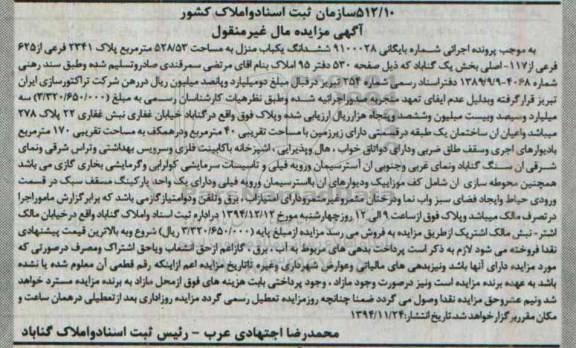 ۵۱۲/۱۰سازمان ثبت اسنادواملاک کشور
آگهی مزایده مال غیرمنقول
به موجب پرونده اجرائی شماره بایگانی ۹۱۰۰۰۲۸ ششدانگ یکباب منزل به مساحت ۵۲۸/۵۳ مترمربع پلاک ۲۳۴۱ فرعی از۶۲۵
فرعی از۱۱۷- اصلی بخش یک گناباد که ذیل صفحه ۵۳۰ دفتر ۹۵ املاک بنام اقای مرتضی سمرقندی صادروتسلیم شده وطبق سند رهنی
شماره ۴۰۶۸-۱۳۸۹/۹/۹ دفتراسناد رسمی شماره ۲۵۴ تبریز درقبال مبلغ دومیلیارد وپانصد میلیون ریال دررهن شرکت تراکتورسازی ایران
تبریز قرارگرفته وبدلیل عدم ایفای تعهد منجربه صدوراجرائیه شده وطبق نظرهیات کارشناسان رسمی به مبلغ (۳/۳۲۰/۶۵۰/۰۰۰) سه
میلیارد وسیصد وبیست میلیون وششصد وپنجاه هزارریال ارزیابی شده وپلاک فوق واقع درگناباد خیابان غفاری نبش غفاری ۲۲ پلاک ۲۷۸
میباشد واعیان ان ساختمان یک طبقه درقسمتی دارای زیرزمین با مساحت تقریبی ۴۰ مترمربع ودرهمکف به مساحت تقریبی ۱۷۰ مترمربع
بادیوارهای اجری وسقف طاق ضربی ودارای دواتاق خواب ، هال وپذیرایی ، اشپزخانه باکابینت فلزی وسرویس بهداشتی وتراس شرقی ونمای
شرقی ان سنگ گناباد ونمای غربی وجنوبی ان آسترسیمان ورویه فیلی و تاسیسات سرمایشی کولرابی وگرمایشی بخاری گازی می باشد
همچنین محوطه سازی ان شامل کف موزاییک ودیوارهای ان باآسترسیمان ورویه فیلی ودارای یک واحد پارکینگ مسقف سبک در قسمت
ورودی حیاط وایجاد فضای سبز واب نما ودرختان مثمروغیرمثمرودارای امتیازاب ، برق وتلفن ودوامتیازگازمی باشد که برابرگزارش ماموراجرا
در تصرف مالک میباشد وپلاک فوق ازساعت ۹ الی ۱۲ روزچهارشنبه مورخ ۱۳۹۴/۱۲/۱۲ دراداره ثبت اسناد واملاک گناباد واقع درخیابان مالک
اشتر- نبش مالک اشتریک ازطریق مزایده به فروش می رسد مزایده ازمبلغ پایه (۳/۳۲۰/۶۵۰/۰۰۰ ریال) شروع وبه بالاترین قیمت پیشنهادی
نقدا فروخته می شود لازم به ذکر است پرداخت بدهی های مربوط به آب ، برق ، گازاعم ازحق انشعاب ویاحق اشتراک ومصرف درصورتی که
مورد مزایده دارای آنها باشد ونیزبدهی های مالیاتی وعوارض شهرداری وغیره تاتاریخ مزایده اعم ازاینکه رقم قطعی آن معلوم شده یا نشده
باشد به عهده برنده مزایده است ونیز درصورت وجود مازاد ، وجود پرداختی بابت هزینه های فوق ازمحل مازاد به برنده مزایده مسترد خواهد
شد ونیم عشروحق مزایده نقدا وصول می گردد ضمنا چنانچه روزمزایده تعطیل رسمی گردد مزایده روزاداری بعد ازتعطیلی درهمان ساعت و
مکان مقرربرگزارخواهد شد.تاریخ انتشار:۱۳۹۴/۱۱/۲۴
محمدرضا اجتهادی عرب - رئیس ثبت اسنادواملاک گناباد